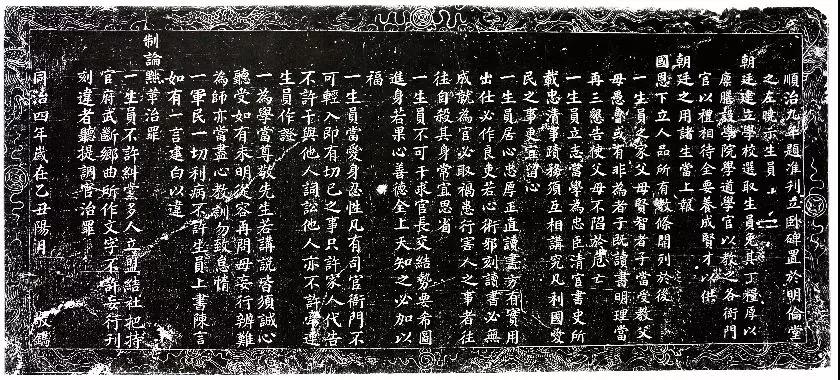 順治九年題准刊立卧碑置於明倫堂
之左曉示生員
朝廷建立學校選取生員免其丁糧厚以
廩膳設學院學道學官以教之各衙門
官以禮相待全要養成賢才以供
朝廷之用諸生當上報
國恩下立人品所有教條開列於後
一生員之家父母賢智者子當受教父
母愚魯或有非為者子既讀書明理當
再三懇告使父母不陷於危亡
一生員立志當學為忠臣清官書史所
載忠清事蹟務須互相講究凡利國愛
民之事更宜留心
一生員居心忠厚正直讀書方有實用
出仕必作良吏若心術邪刻讀書必無
成就為官必取禍患行害人之事者往
往自殺其身常宜思省
一生員不可干求官長交結勢要希圖
進身若果心善德全上天知之必加以
福
一生員當愛身忍性凡有司官衙門不
可輕入即有切己之事只許家人代告
不許干與他人詞訟他人亦不許牽連
生員作證
一為學當尊敬先生若講說皆須誠心
聽受如有未明從容再問毋妄行辨難
為師亦當盡心教訓勿致怠惰
一軍民一切利病不許生員上書陳言
如有一言建白以違
制論黜革治罪
一生員不許糾黨多人立盟結社把持
官府武斷鄉曲所作文字不許妄行刊
刻違者聽提調官治罪
同治四年歲在乙丑陽月